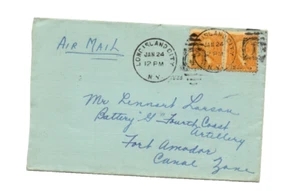 AIR MAIL
LONG ISLAND CITY
JAN 24
12 PM
N.Y.
JAN 24
12 PM
Mr. Lennart Larson
Battery "G" Fourth Coast
Artillery
Fort Amador
Canal Zone